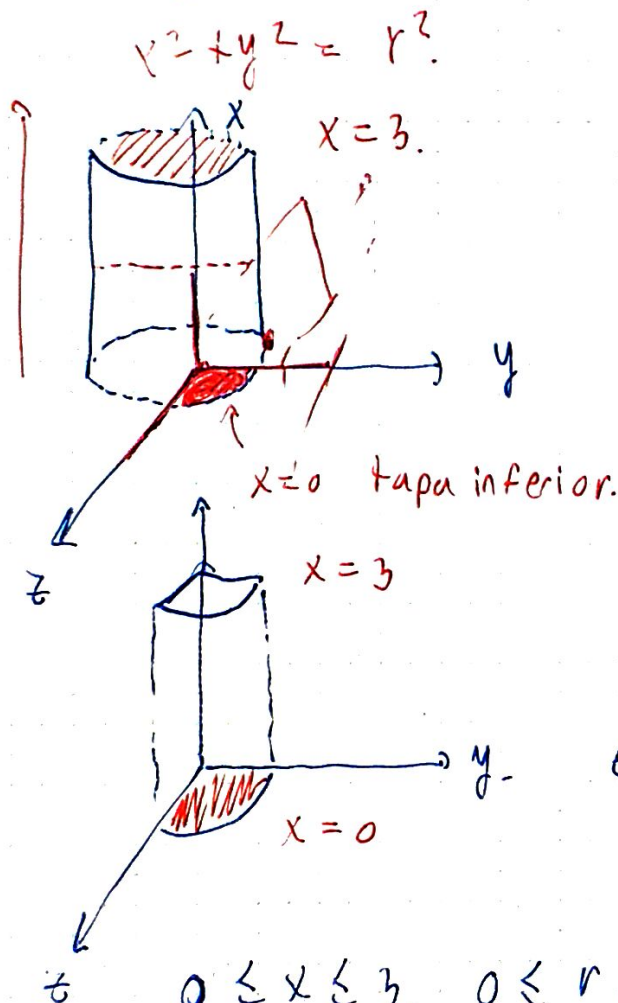 x² + y² = r².
x
x = 3.
y
x=0 tapa inferior.
z
x = 3
y.
x = 0
z
0 ≤ x ≤ 3 0 ≤ r